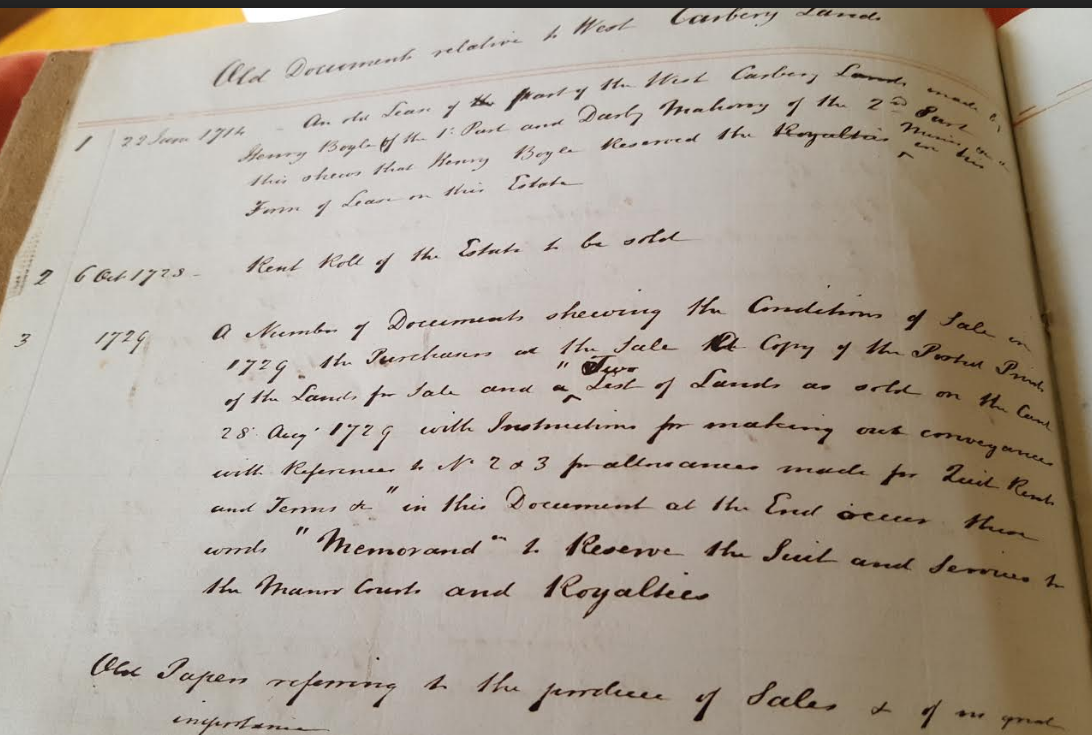 Old Documents relative to West Carbery Lands
1 22 June 1714 - An old Lease of the part of the West Carbery Lands made by
Henry Boyle of the 1st Part and Darby Mahony of the 2nd Part
this shews that Henry Boyle Reserved the Royalties Mines in this
Form of Lease on this Estate
2 6 Oct 1728 - Rent Roll of the Estate to be sold
3 1729 A Number of Documents shewing the Conditions of Sale in
1729. the Purchasers at the Sale A Copy of the Posted
of the Lands for Sale and a " Two List of Lands as sold on the Cant
28 Augt 1729 with Instructions for making out conveyances
with References to No 2 & 3 for allowances made for Quit Rents
and Terms &c " in this Document at the End occur these
words " Memorandm " to Reserve the Suit and Services to
the Manor Courts and Royalties
Old Papers referring to the produce of Sales & of no great
importance